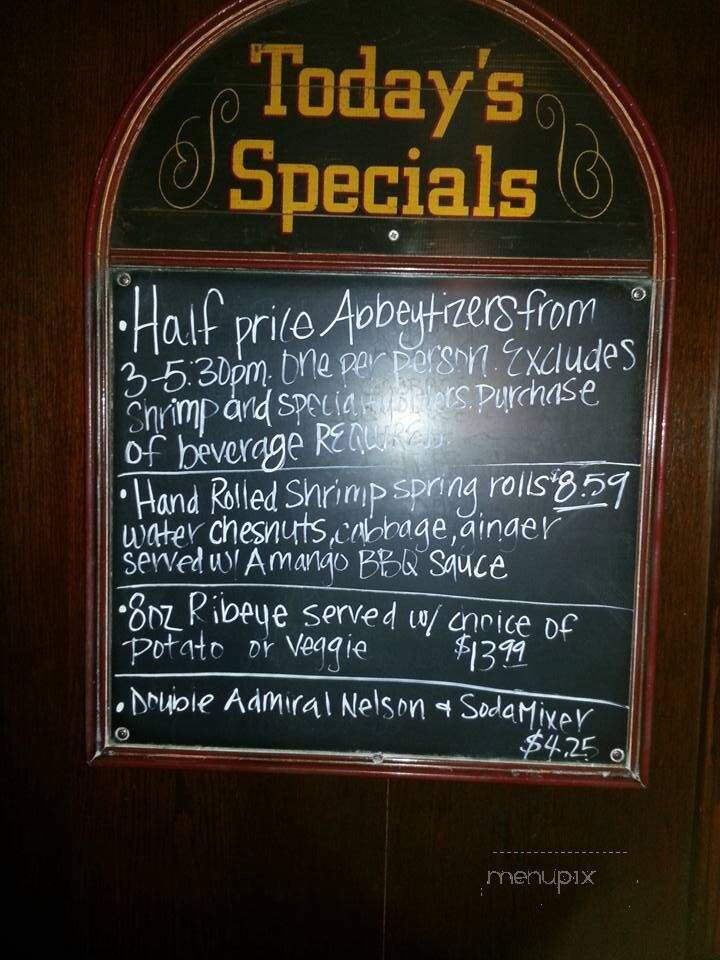 Today's
Specials
• Half price Abbeytizers from
3-5:30pm. One per person. Excludes
Shrimp and specialty orders. Purchase
of beverage REQUIRED.
• Hand Rolled Shrimp spring rolls $8.59
water chesnuts, cabbage, ginger
served w/ A mango BBQ Sauce
• 8oz Ribeye served w/ choice of
potato or Veggie $13.99
• Double Admiral Nelson & Soda Mixer
$4.25
menupix